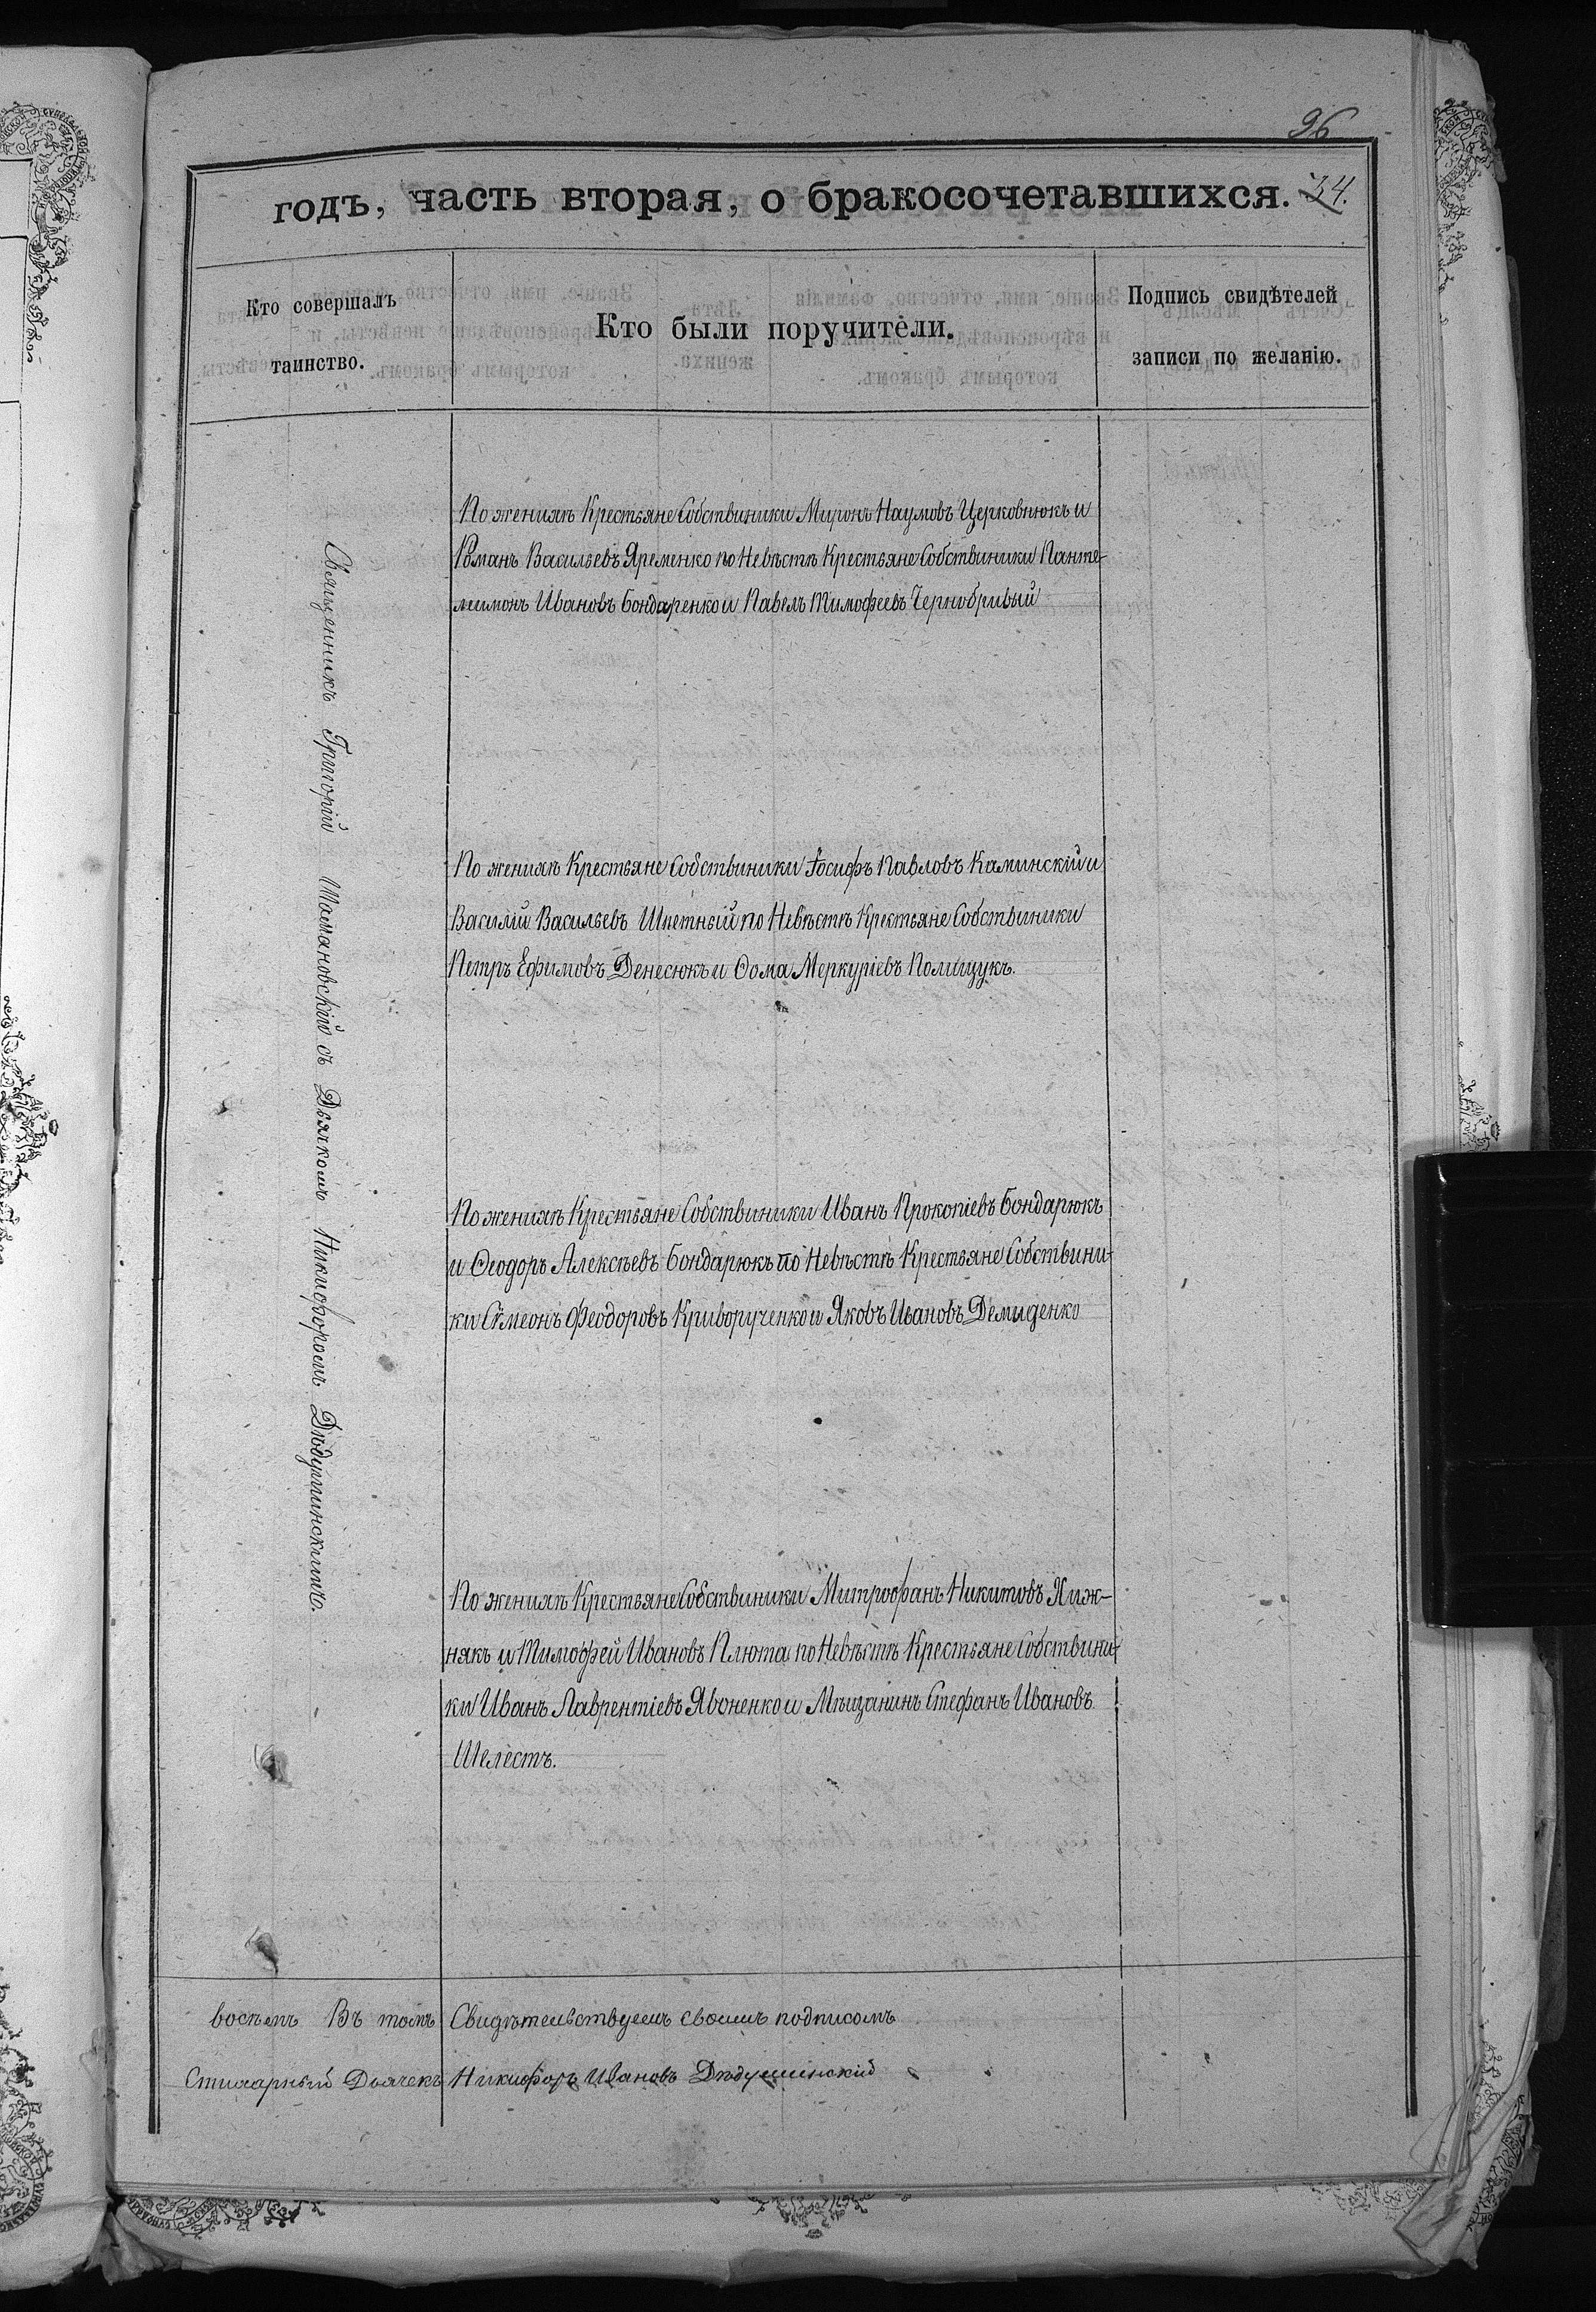 96
годъ, часть вторая, о бракосочетавшихся. 34.
Кто совершалъ
таинство.
Кто были поручители.
Подпись свидѣтелей
записи по желанію.
Священникъ Григорій Шамановскій съ Дьячкомъ Никифоромъ Дѣдушинскимъ.
По женихѣ Крестьяне Собствиники Миронъ Наумовъ Церковнюкъ и
Романъ Васильевъ Яременко по Невѣстѣ Крестьяне Собствиники Панте-
леимонъ Ивановъ Бондаренко и Павелъ Тимофеевъ Чернобривый
По женихѣ Крестьяне Собствиники Іосифъ Павловъ Каминскій и
Василій Васильевъ Шпетный по Невѣстѣ Крестьяне Собствиники
Петръ Ефимовъ Денесюкъ и Ѳома Меркуріевъ Полищукъ.
По женихѣ Крестьяне Собствиники Иванъ Прокопіевъ Бондарюкъ
и Ѳеодоръ Алексѣевъ Бондарюкъ по Невѣстѣ Крестьяне Собствини-
ки Сѵмеонъ Феодоровъ Криворученко и Яковъ Ивановъ Демиденко
По женихѣ Крестьяне Собствиники Митрофанъ Никитовъ Хиж-
някъ и Тимофей Ивановъ Плюта по Невѣстѣ Крестьяне Собствини-
ки Иванъ Лаврентіевъ Явоненко и Мѣщанинъ Стефанъ Ивановъ
Шелестъ.
восѣмъ Въ томъ Свидѣтельствуемъ своимъ подписомъ
Стихарный Дьячекъ Никифоръ Ивановъ Дѣдушинскій